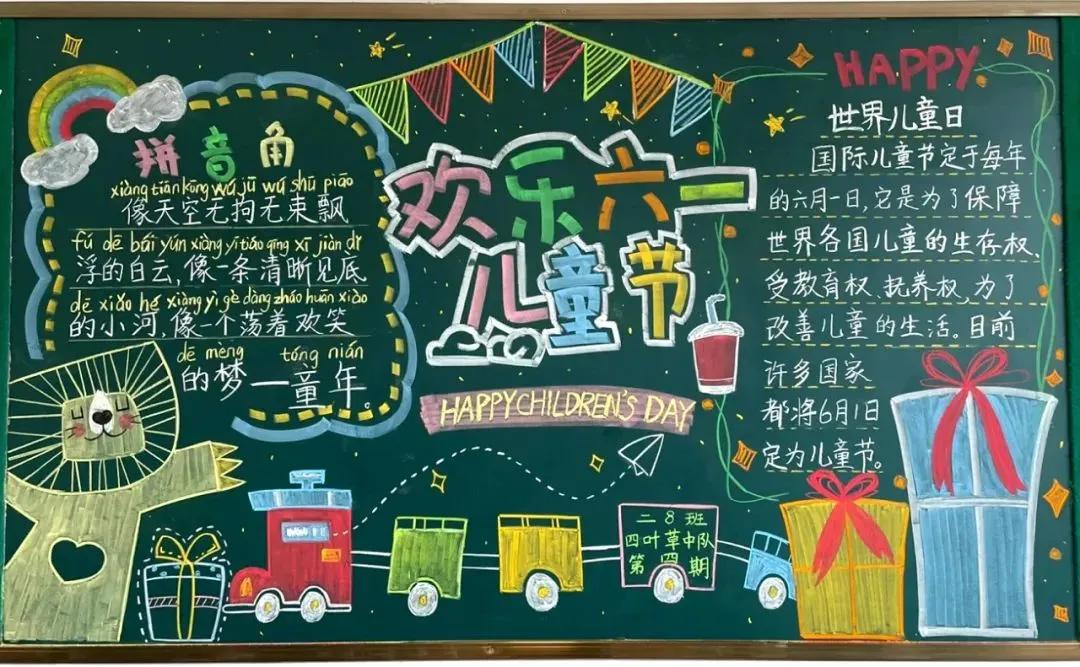 拼音角
xiàng tiān kōng wú jū wú shū piāo
像天空无拘无束飘
fú dē bái yún xiàng yī tiáo qīng xī jiàn dǐ
浮的白云,像一条清晰见底
dē xiǎo hé xiàng yì gè dàng zháo huān xiào
的小河,像一个荡着欢笑
dē mèng tóng nián
的梦—童年。
欢乐六一
儿童节
HAPPY CHILDREN'S DAY
HAPPY
世界儿童日
国际儿童节定于每年
的六月一日,它是为了保障
世界各国儿童的生存权、
受教育权、抚养权,为了
改善儿童的生活。目前
许多国家
都将6月1日
定为儿童节。
二8班
四叶草中队
第四期